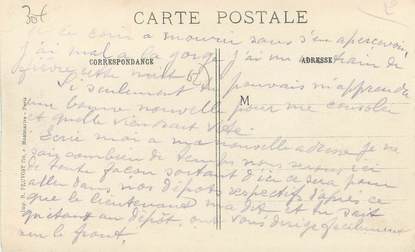 30f
CARTE POSTALE
CORRESPONDANCE
ADRESSE
M
à mourir sans s'en apercevoir,
j'ai mal à la gorge j'ai un train de
fièvre cette nuit
Si seulement tu pouvais m'apprendre
une bonne nouvelle pour me consoler
et quelle vienne vite.
Ecris moi a ma nouvelle adresse je ne
sais combien de temps nous serons ici
de toute façon sortant d'ici ce sera pour
aller dans nos dépots respectifs d'après ce
que le lieutenant m'a dit et tu sait
qu'étant au dépot, on vous dirige facilement
sur le front.